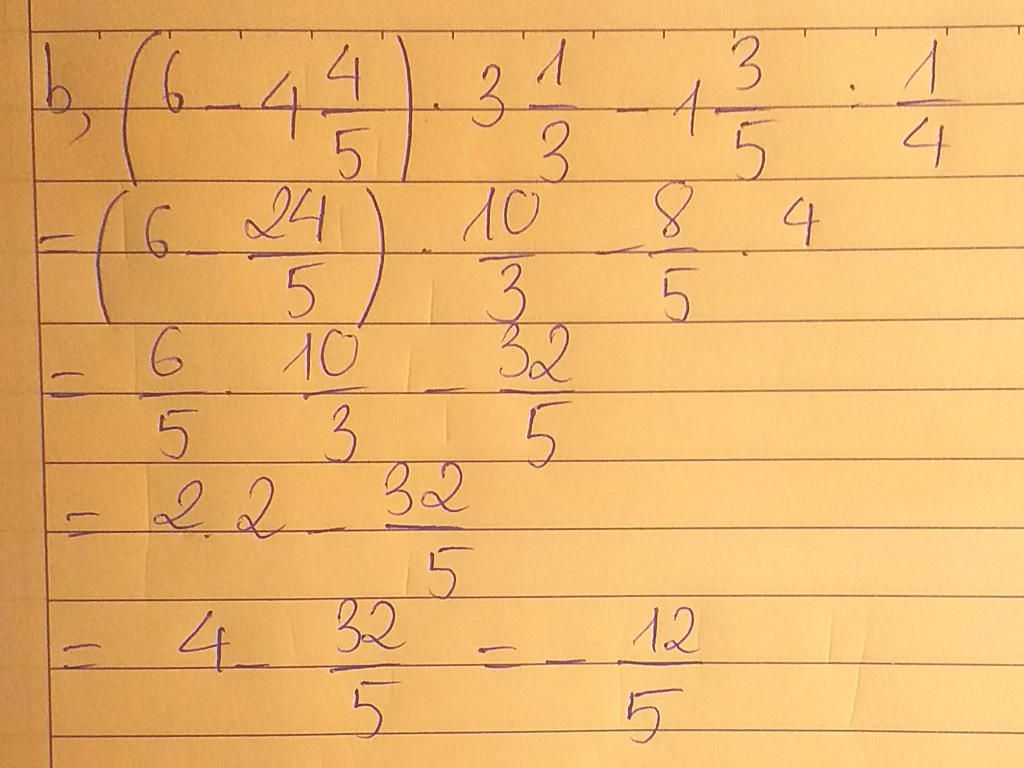 b, (6 - 4 4/5) . 3 1/3 - 1 3/5 : 1/4
= (6 - 24/5) . 10/3 - 8/5 . 4
= 6/5 . 10/3 - 32/5
= 2.2 - 32/5
= 4 - 32/5 = - 12/5